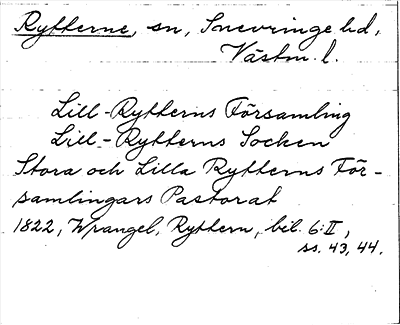 Rytterne, sn, Snevringe hd,
Västm. l.
Lill-Rytterns Församling
Lill-Rytterns Socken
Stora och Lilla Rytterns För-
samlingars Pastorat
1822, Wrangel, Ryttern, bil. 6:II,
ss. 43, 44.